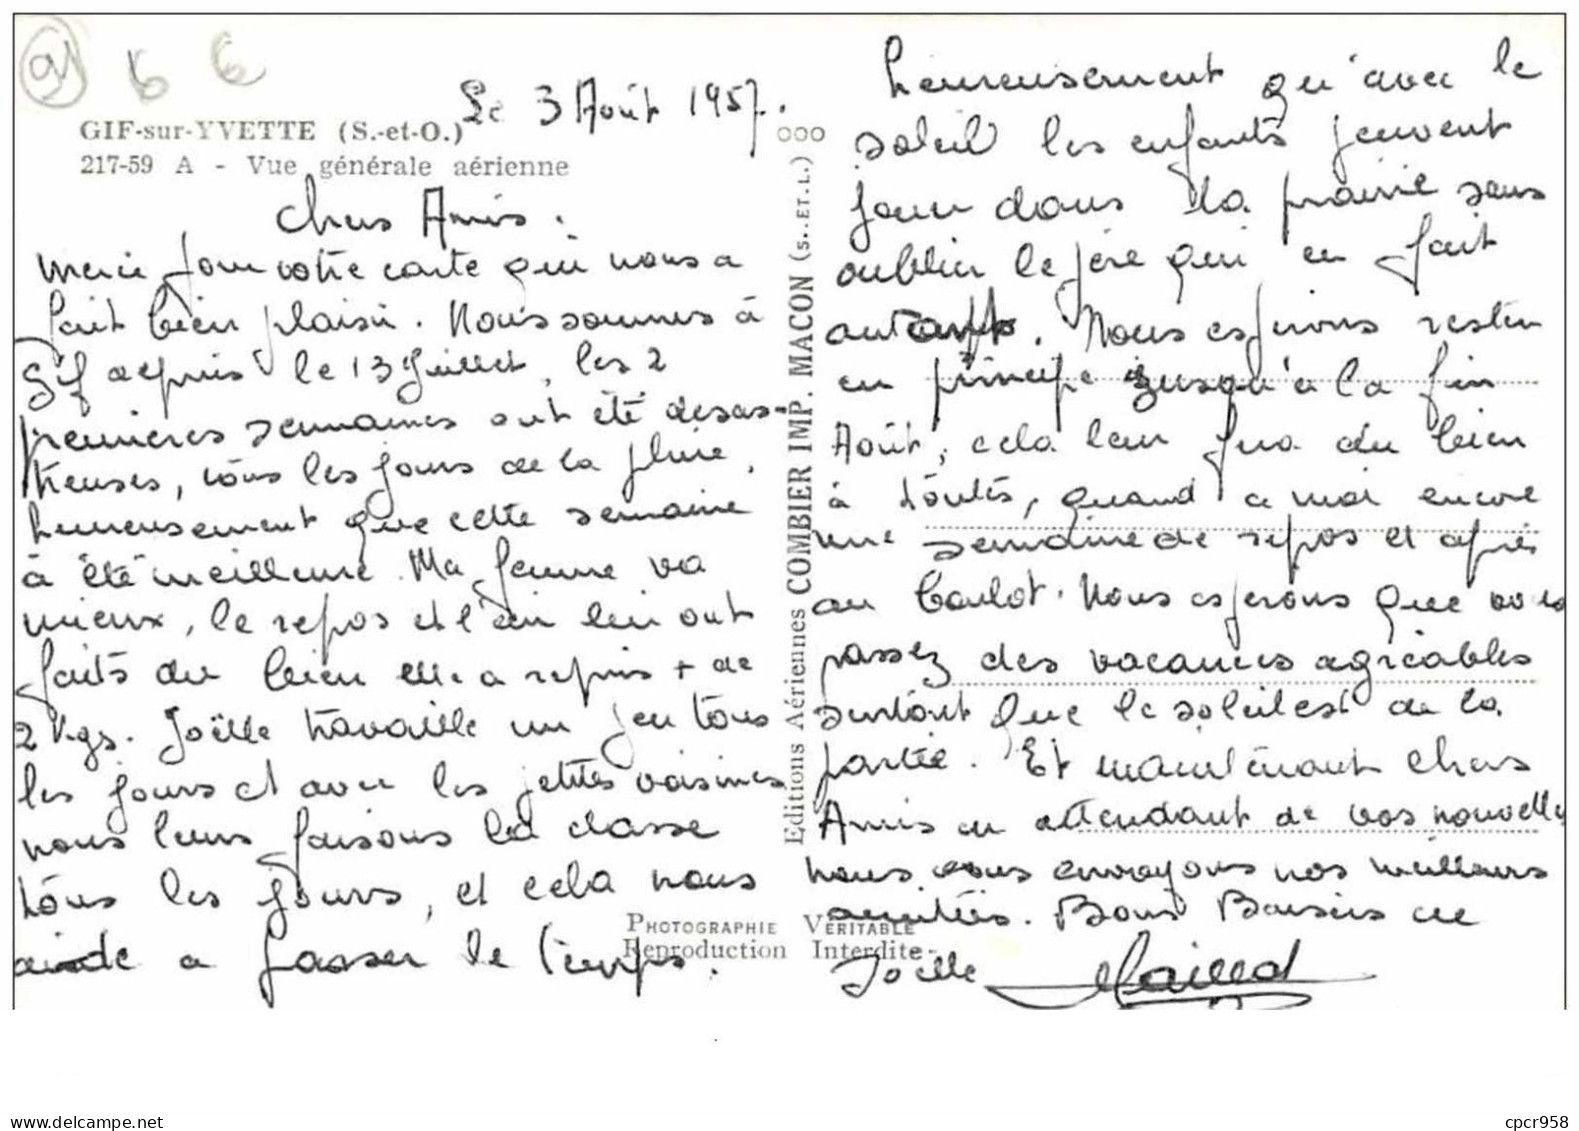 91
6 6
Le 3 Août 1957.
GIF-sur-YVETTE (S.-et-O.)
217-59 A - Vue générale aérienne
Chers Amis.
Merci pour votre carte qui nous a
fait bien plaisir. Nous sommes à
Gif depuis le 13 Juillet, les 2
premières semaines ont été désas-
treuses, tous les jours de la pluie,
heureusement que cette semaine
à été meilleure. Ma femme va
mieux, le repos et l'air lui ont
faits du bien elle a repris + de
2 Kgs. Joëlle travaille un peu tous
les jours et avec les petites voisines
nous leurs faisons la classe
tous les jours, et cela nous
aide a passer le temps.
heureusement qu'avec le
soleil les enfants peuvent
jouer dans la prairie sans
oublier le père qui en fait
autant. Nous espérons rester
en principe jusqu'à la fin
Août, cela leur fera du bien
à toutes, quand a moi encore
une semaine de repos et après
au boulot. Nous espérons que vous
passez des vacances agréables
surtout que le soleil est de la
partie. Et maintenant chers
Amis en attendant de vos nouvelles
nous vous envoyons nos meilleurs
amitiés. Bons Baisers de
Joëlle
ooo
Editions Aériennes COMBIER IMP. MACON (S.-ET-L.)
PHOTOGRAPHIE VÉRITABLE
Reproduction Interdite
delcampe.net
cpcr958